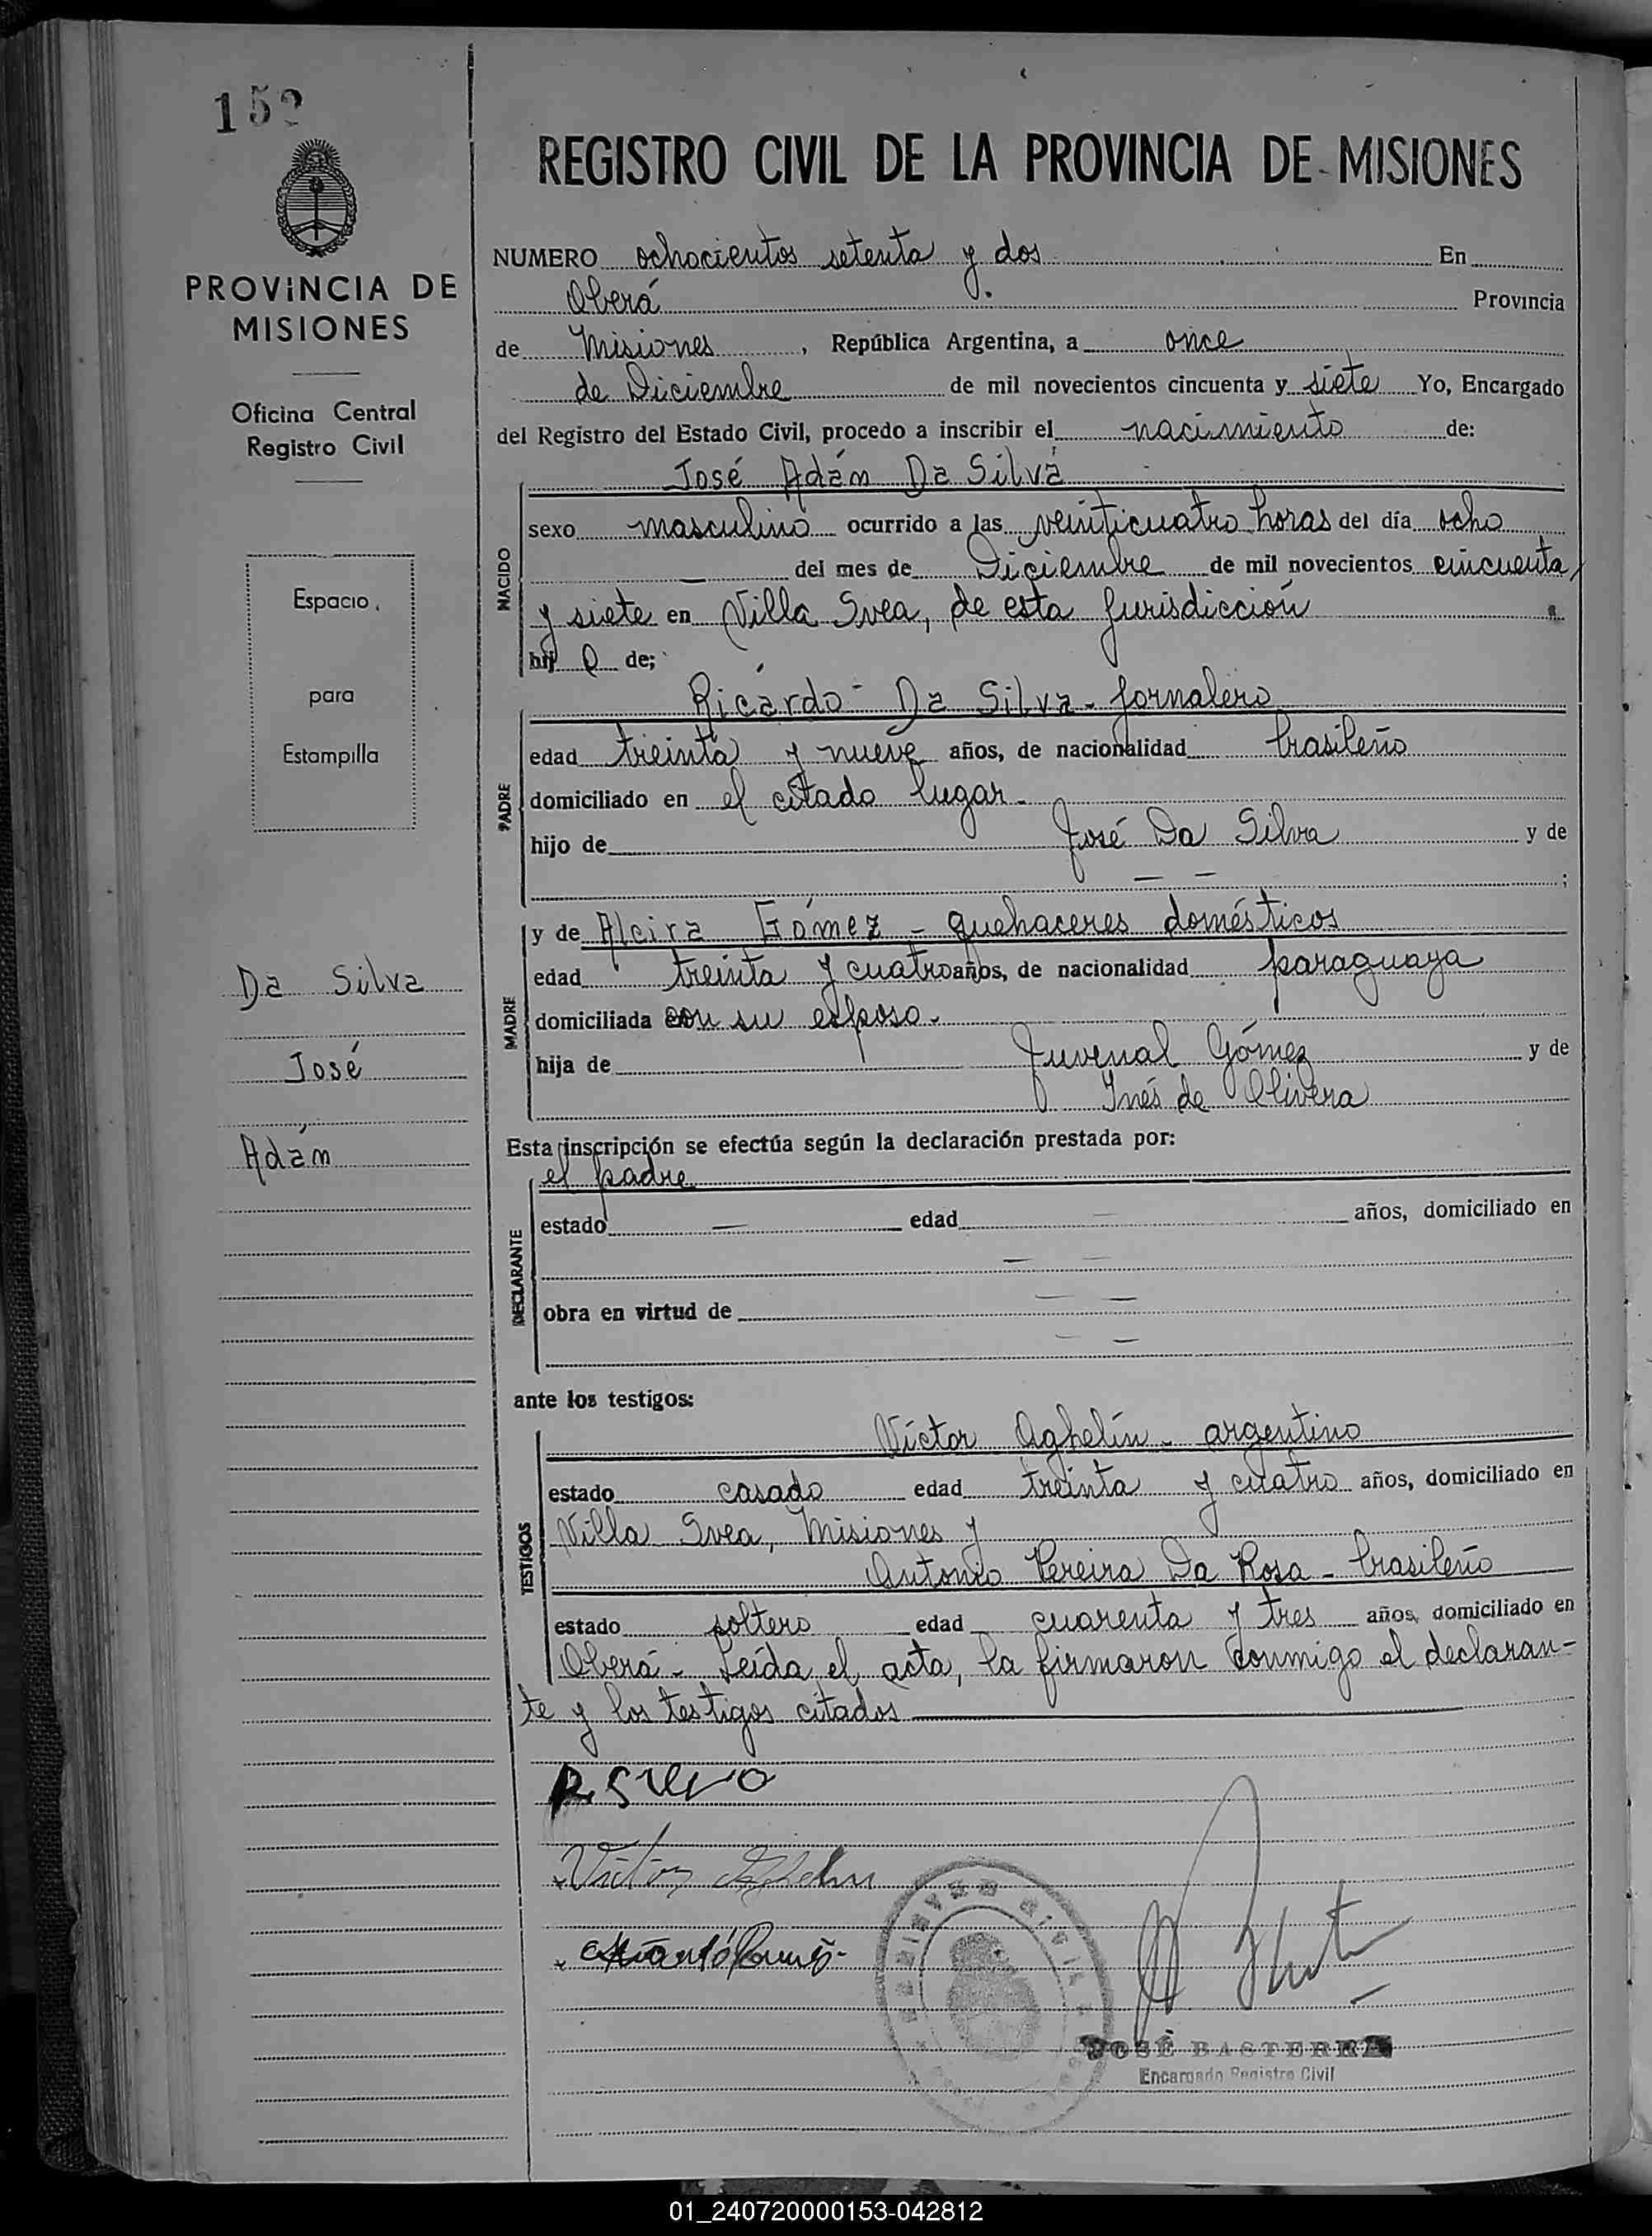 152
REGISTRO CIVIL DE LA PROVINCIA DE MISIONES
PROVINCIA DE
MISIONES
Oficina Central
Registro Civil
Espacio
para
Estampilla
Da Silva
José
Adán
NUMERO ochocientos setenta y dos En
Oberá Provincia
de Misiones, República Argentina, a once
de Diciembre de mil novecientos cincuenta y siete Yo, Encargado
del Registro del Estado Civil, procedo a inscribir el nacimiento de:
José Adán Da Silva
NACIDO
sexo masculino ocurrido a las veinticuatro horas del día ocho
del mes de Diciembre de mil novecientos cincuenta
y siete en Villa Svea, de esta jurisdicción
hij o de;
Ricardo Da Silva - jornalero
PADRE
edad treinta y nueve años, de nacionalidad brasileño
domiciliado en el citado lugar.
hijo de José Da Silva y de
— — ;
y de Alcira Gómez - quehaceres domésticos
MADRE
edad treinta y cuatro años, de nacionalidad paraguaya
domiciliada con su esposo.
hija de Juvenal Gómez y de
Inés de Olivera
Esta inscripción se efectúa según la declaración prestada por:
el padre
DECLARANTE
estado — edad — años, domiciliado en
— —
obra en virtud de — —
— —
ante los testigos:
Víctor Aghelín - argentino
TESTIGOS
estado casado edad treinta y cuatro años, domiciliado en
Villa Svea, Misiones y
Antonio Pereira Da Rosa - brasileño
estado soltero edad cuarenta y tres años, domiciliado en
Oberá - Leída el acta, la firmaron conmigo el declaran-
te y los testigos citados
R. Silva
Victor Aghelin
JOSÉ BASTERRA
Encargado Registro Civil
01_240720000153-042812